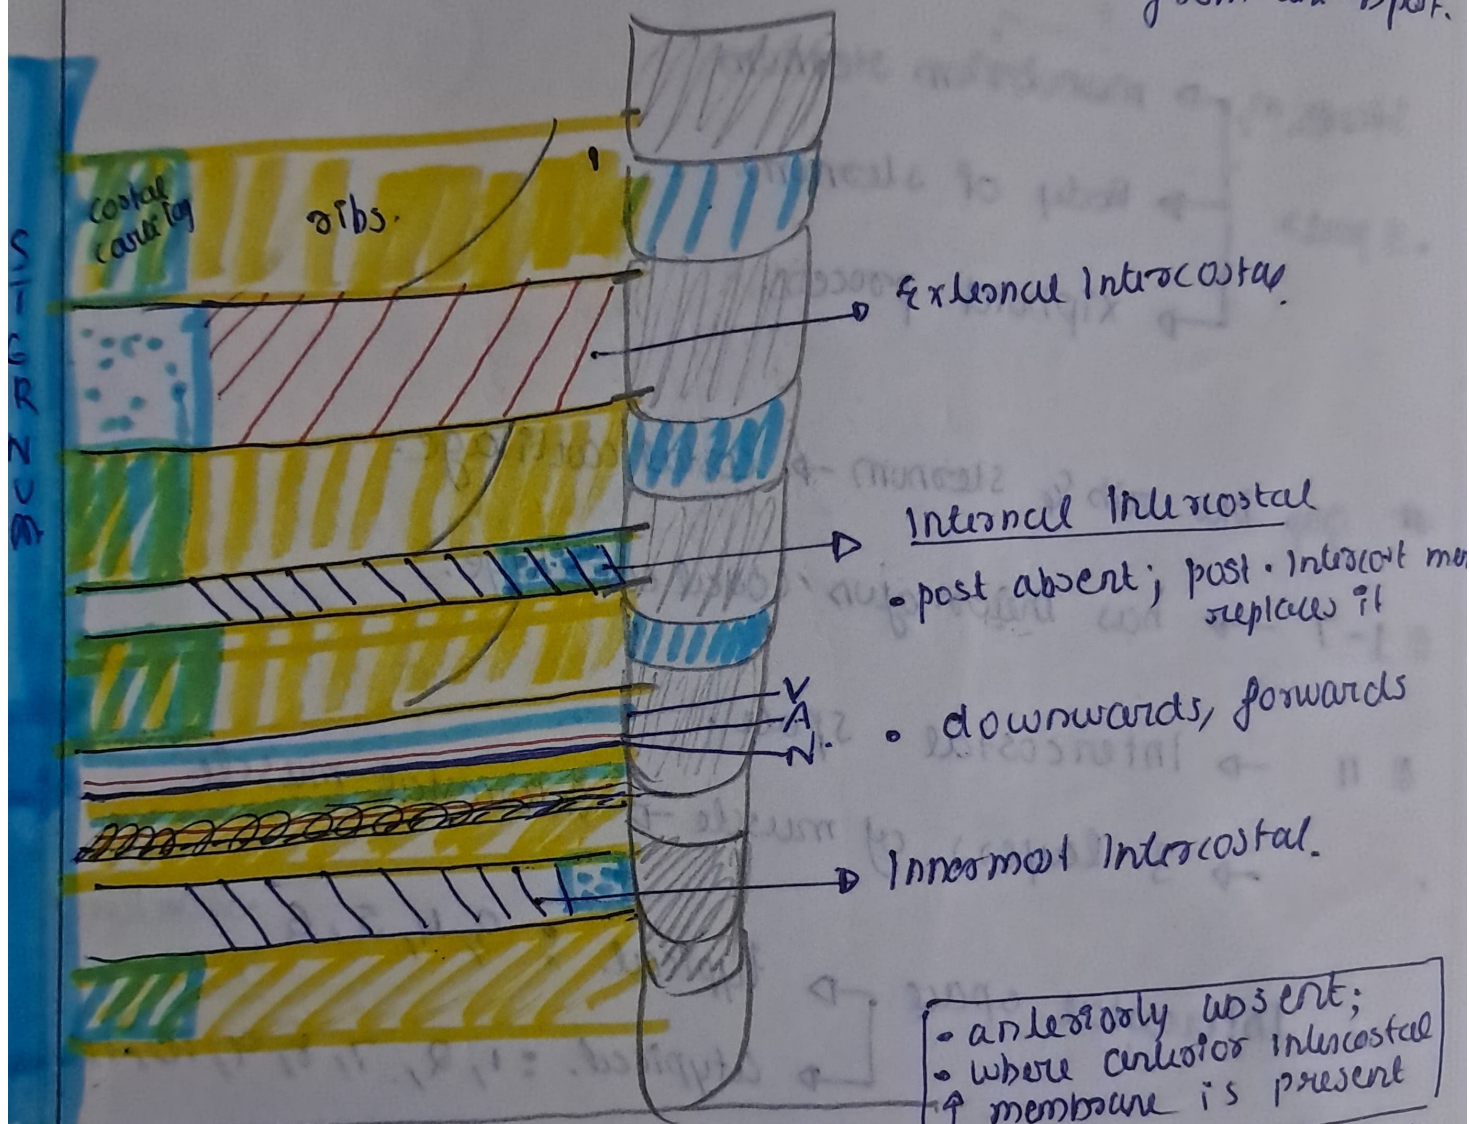 costal
ribs.
External Intercostal
Internal Intercostal
• post absent; post. Intercost mem
replaces it
V
A
N.
• downwards, forwards
Innermost Intercostal.
• anteriorly absent;
• where anterior intercostal
membrane is present